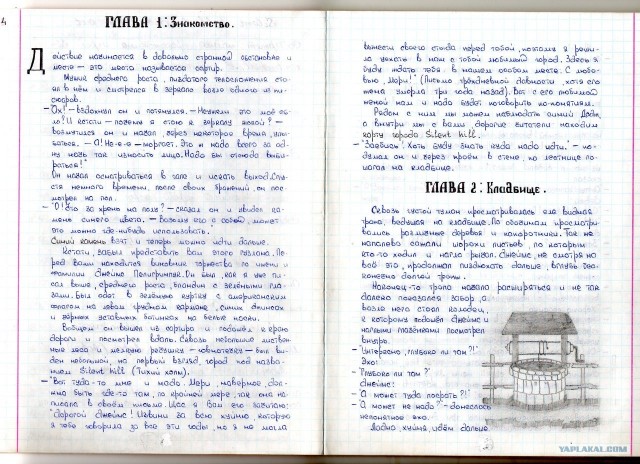 4
ГЛАВА 1: Знакомство.
Действие начинается в довольно странной обстановке и
месте – это место называется сортир.
Мужик среднего роста, пиздатого телосложения сто-
ял в нём и смотрелся в зеркало возле одного из пи-
ссуаров.
– "Ох!" – вздохнул он и потянулся. – "Неужели это моё еб-
ло?! И кстати – почему я стою к зеркалу жопой?" –
возмутился он и начал, через некоторое время, улы-
баться. – "А! Не-е-е – моргает. Это ж надо всего за од-
ну ночь так износить лицо. Надо бы отсюда выби-
раться!"
Он начал осматриваться в зале и искать выход. Спу-
стя немного времени, после своих страданий, он пос-
мотрел на пол.
– "О! Это за хрень на полу?" – сказал он и увидел ка-
мень синего цвета. – "Возьму его с собой, может
это можно где-нибудь использовать."
Синий камень взят и теперь можно идти дальше.
Кстати, забыл представить вам этого чувака. Пе-
ред вами находится виновник торжества по имени и
фамилии Джеймс
Он был, как я уже пи-
сал выше, среднего роста, блондин с зелёными гла-
зами. Был одет в зелёную куртку с американским
флагом на левом грудном кармане, синих джинсах
и чёрных уставных ботинках на белые носки.
Вобщем он вышел из сортира и подошёл к краю
дороги и посмотрел вдаль. Сквозь небольшие листвен-
ные леса и мелкую речушку – был ви-
ден небольшой, на первый взгляд, город под назва-
нием Silent Hill (Тихий холм).
– "Вот туда-то мне и надо. Мери, наверное, дол-
жна быть где-то там, по крайней мере, так она на-
писала в своём письме. Щас я Вам его зачитаю:
"Дорогой Джеймс! Извини за всю хуйню которую
я тебе говорила за все эти годы, но я не могла
вынести своего стыда перед тобой, поэтому я реши-
ла уехать в наш с тобой любимый город. Здесь я
буду ждать тебя в нашем особом месте. С любо-
вью, Мери!" (Письмо трёхдневной давности хотя его
жена умерла три года назад). Вот с его любимой
женой нам и надо будет поговорить по-понятиям.
Рядом с ним мы можем наблюдать синий Додж,
а внутри мы с вами, дорогие читатели находим
карту города Silent Hill.
– "Заебись! Хоть буду знать куда надо идти." – по-
думал он и через проём в стене, по лестнице по-
пагал на кладбище.
ГЛАВА 2: Кладбище.
Сквозь густой туман просматривалась еле видная
тропа, ведущая на кладбище. По обочинам просматри-
вались различные деревья и папоротники. Так же
напалево лежали шорохи листьев, по которым
кто-то ходил и нагло рыгал. Джеймс, не смотря на
всё это, продолжал пиздюхать дальше, вглубь бес-
конечно долгой тропы.
Наконец-то тропа начала расширяться и не так
далеко показался забор, а
возле него стоял колодец,
к которому подошёл Джеймс и
наглыми глазёнками посмотрел
внутрь.
– "Интересно, глубоко ли там?!"
Эхо:
– "Глубоко ли там?"
Джеймс:
– "А может туда посрать?!"
– "А может не надо?" – донеслось
непонятное эхо.
Ладно, хуйня, идём дальше.
2
YAPLAKAL.COM